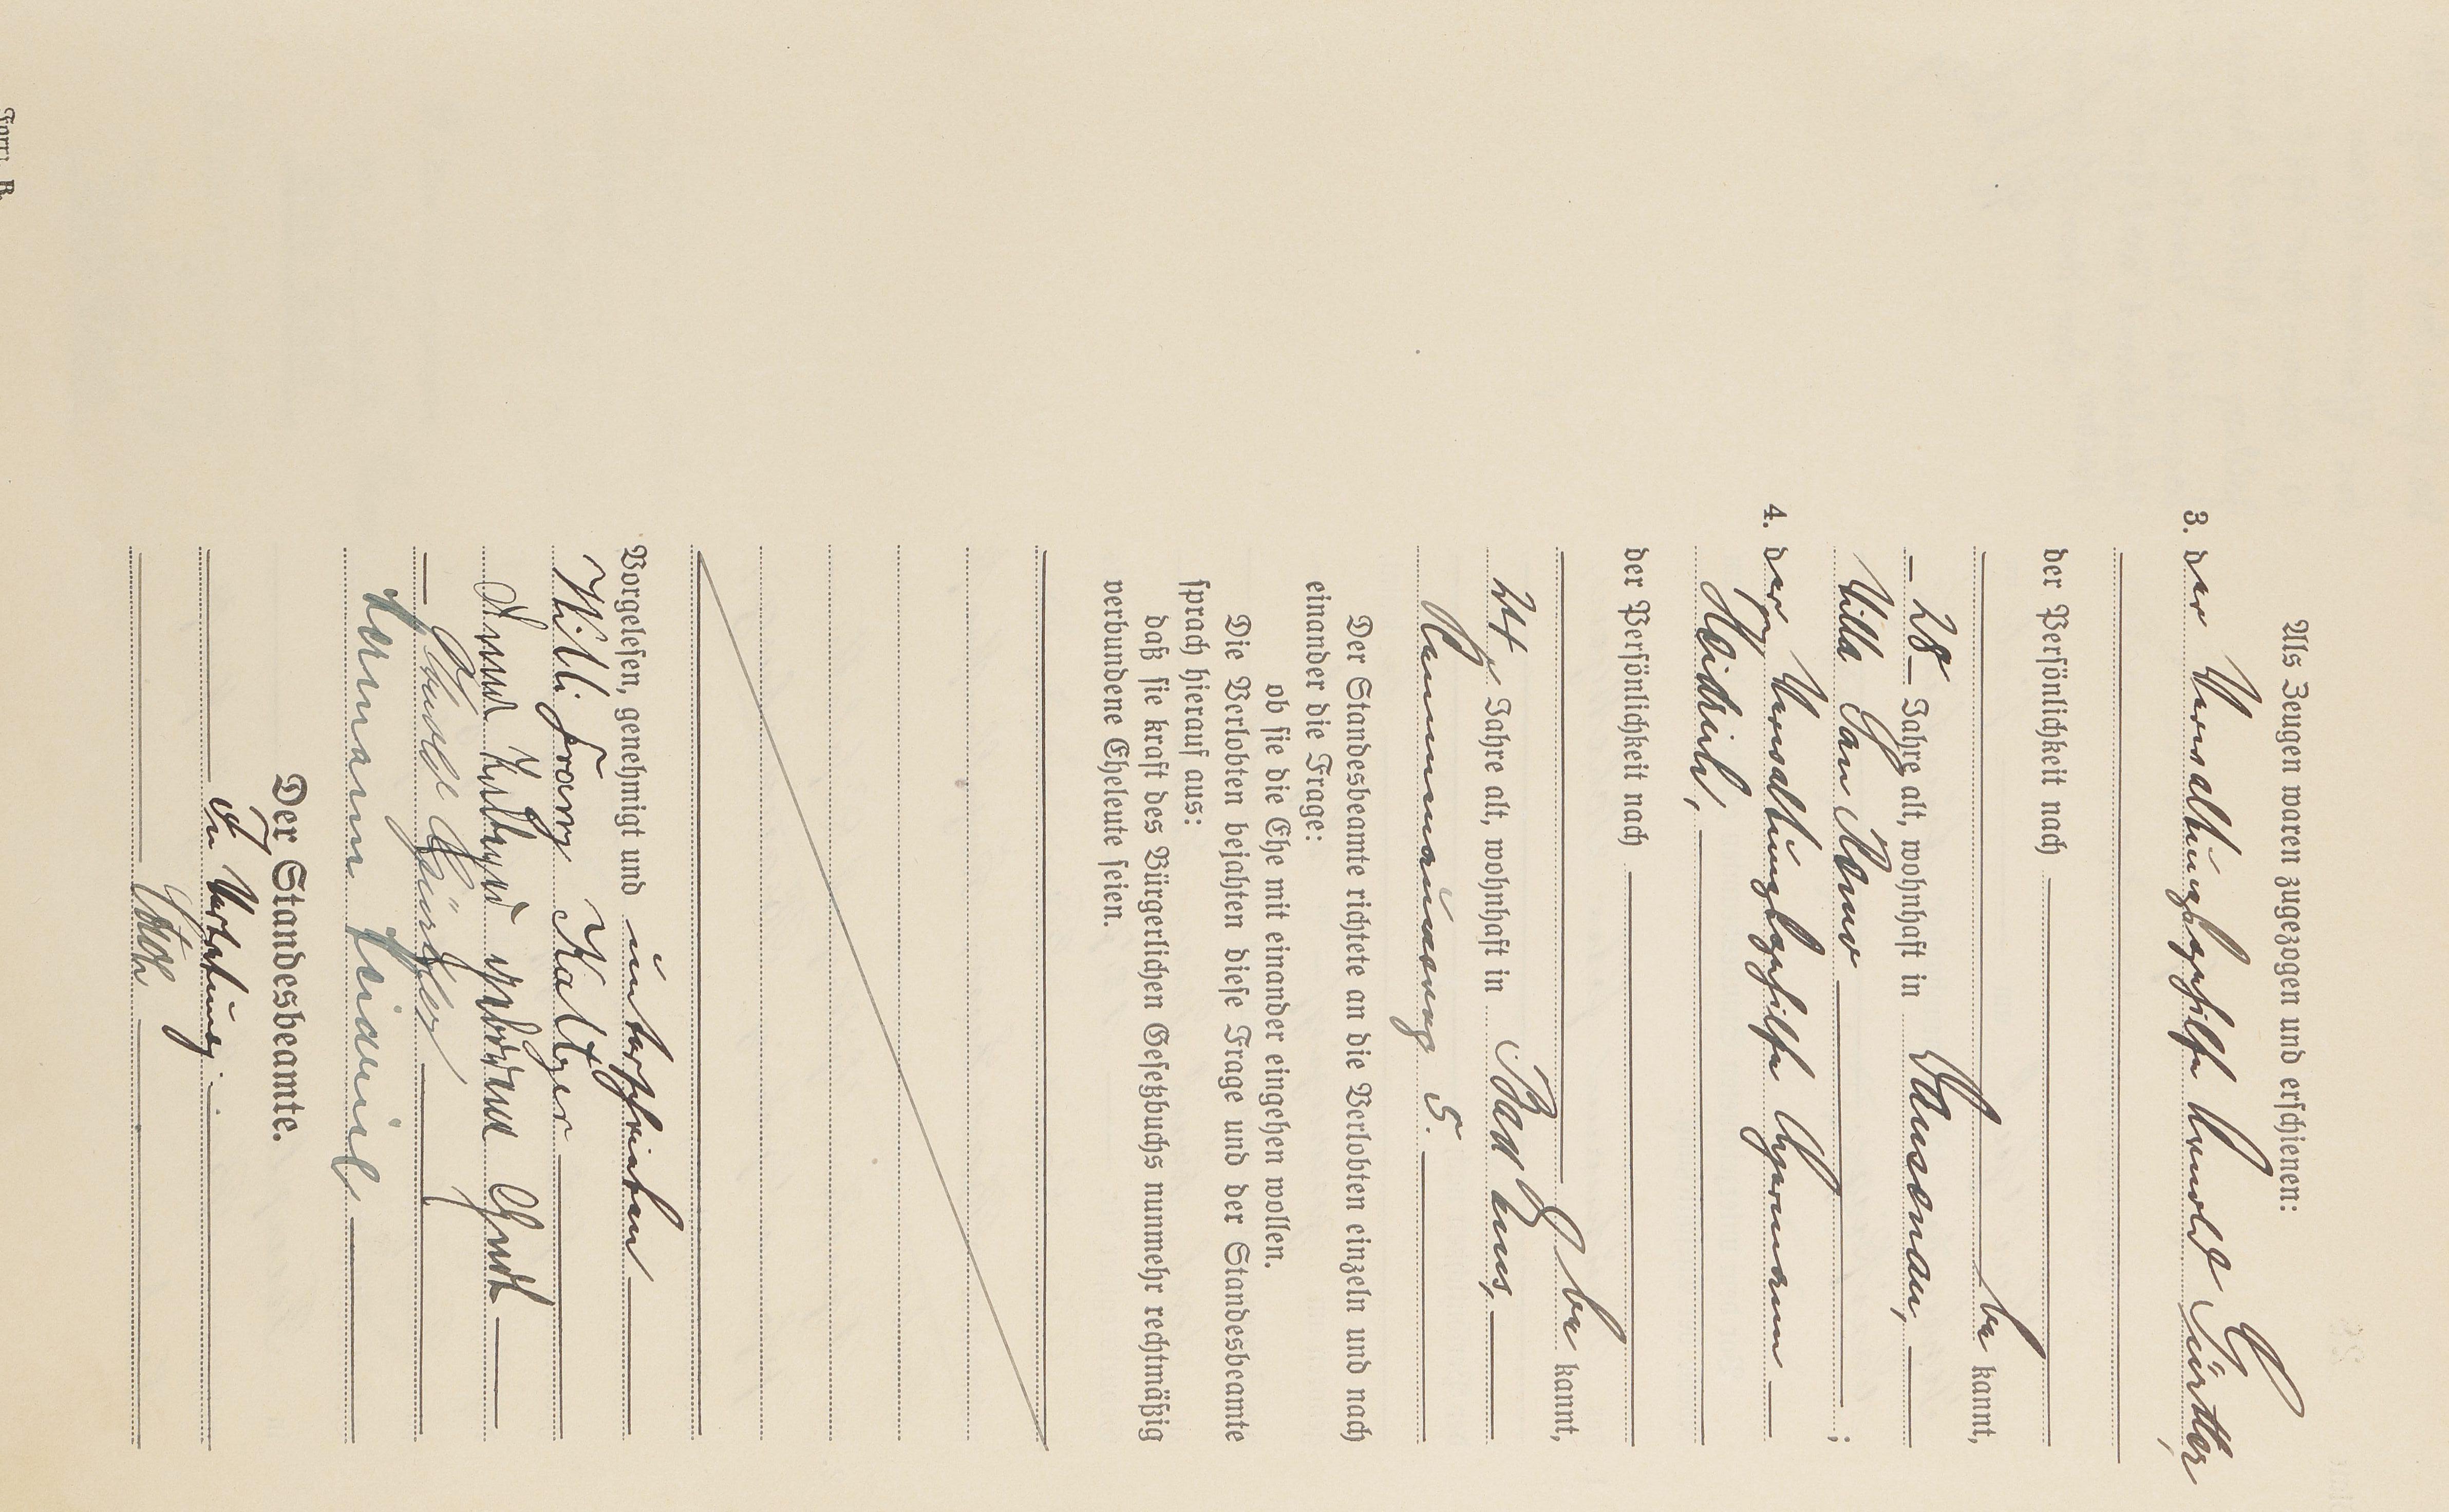 Als Zeugen waren zugezogen und erschienen:
3. der Verwaltungsgehilfe Arnold Gürtler,
der Persönlichkeit nach
be kannt,
28 Jahre alt, wohnhaft in
Villa San Remo ;
4. der Verwaltungsgehilfe Hermann
der Persönlichkeit nach
be kannt,
24 Jahre alt, wohnhaft in Bad Ems,
5.
Der Standesbeamte richtete an die Verlobten einzeln und nach
einander die Frage:
ob sie die Ehe mit einander eingehen wollen.
Die Verlobten bejahten diese Frage und der Standesbeamte
sprach hierauf aus:
daß sie kraft des Bürgerlichen Gesetzbuchs nunmehr rechtmäßig
verbundene Eheleute seien.
Vorgelesen, genehmigt und unterschrieben
Willi Franz
geborene
Arnold Gürtler
Hermann
Der Standesbeamte.
In Vertretung:
Form. B.